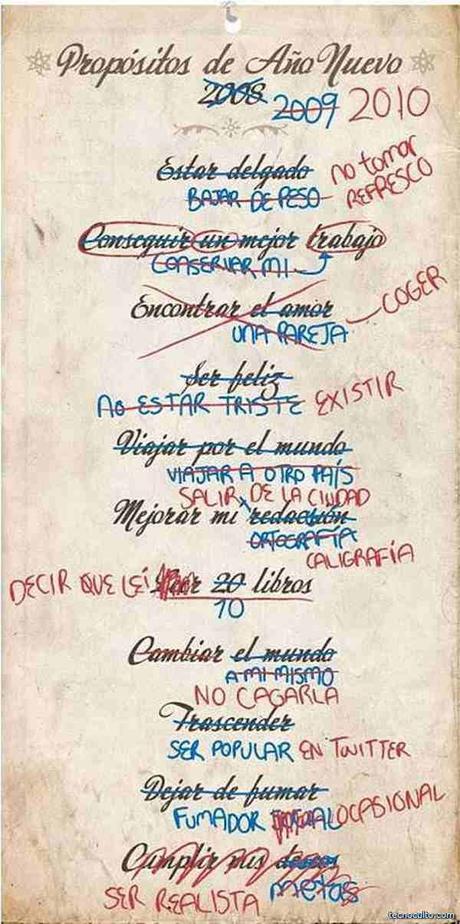 Propósitos de Año Nuevo
2008 2009 2010
Estar delgado no tomar
BAJAR DE PESO REFRESCO
Conseguir un mejor trabajo
CONSERVAR MI
Encontrar el amor COGER
UNA PAREJA
Ser feliz
NO ESTAR TRISTE EXISTIR
Viajar por el mundo
VIAJAR A OTRO PAÍS
SALIR DE LA CIUDAD
Mejorar mi redacción
ORTOGRAFÍA
CALIGRAFÍA
DECIR QUE LEÍ Leer 20 libros
10
Cambiar el mundo
A MI MISMO
NO CAGARLA
Trascender
SER POPULAR EN TWITTER
Dejar de fumar
FUMADOR OCASIONAL
Cumplir mis deseos
SER REALISTA metas
tecnoculto.com